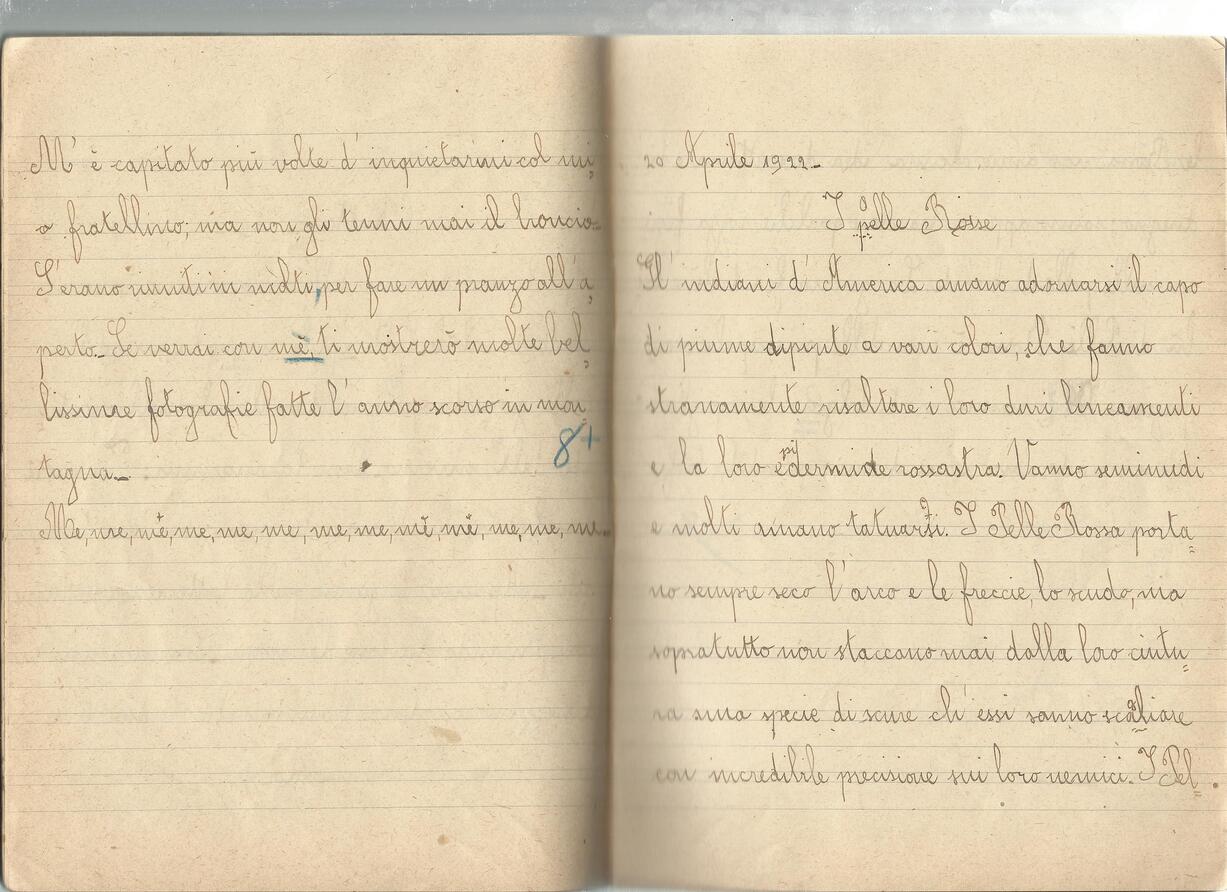 M' è capitato più volte d' inquietarmi col mi,
o fratellino; ma non gli tenni mai il broncio.
S'erano uniti in molti, per fare un pranzo all' a,
perto. Se verrai con mè, ti mostrerò molte bel,
lissime fotografie fatte l' anno scorso in mon
tagna.
8+
Me, me, mè, me, me, me, me, me, mè, mè, me, me, me.
20 Aprile 1922.
I pelle Rosse
Gl' indiani d' America amano adornarsi il capo
di piume dipinte a vari colori, che fanno
stranamente risaltare i loro duri lineamenti
e la loro epidermide rossastra. Vanno seminudi
e molti amano tatuarsi. I Pelle Rossa porta=
no sempre seco l' arco e le freccie, lo scudo, ma
sopratutto non staccano mai dalla loro cintu=
ra una specie di scure ch' essi sanno scagliare
con incredibile precisione sui loro nemici. I Pel=